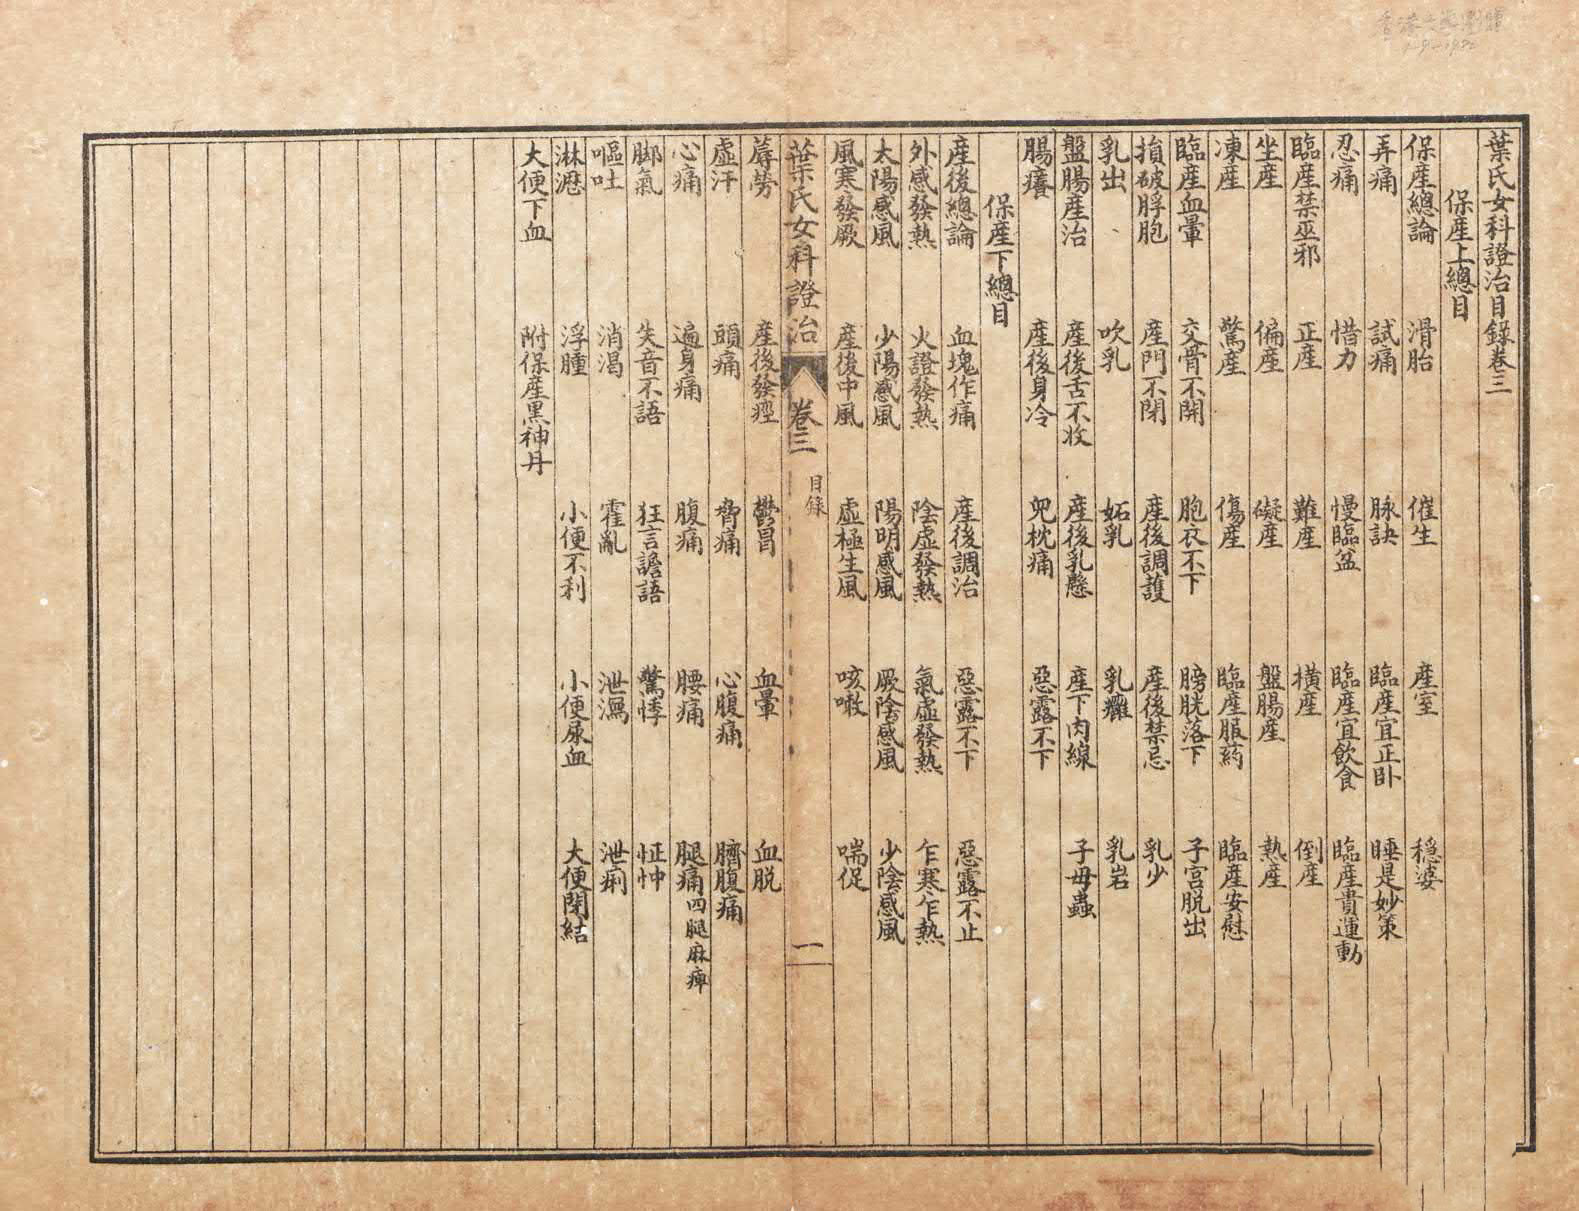 葉氏女科證治目錄卷三
保産上總目
保産總論 滑胎 催生 産室 穩婆
弄痛 試痛 脉訣 臨産宜正卧 睡是妙策
忍痛 惜力 慢臨盆 臨産宜飲食 臨産貴運動
臨産禁巫邪 正産 難産 橫産 倒産
坐産 偏産 礙産 盤腸産 熱産
凍産 驚産 傷産 臨産服药 臨産安慰
臨産血暈 交骨不開 胞衣不下 膀胱落下 子宮脱出
損破脬胞 産門不閉 産後調護 産後禁忌 乳少
乳出 吹乳 妬乳 乳癰 乳岩
盤腸産治 産後舌不收 産後乳懸 産下肉線 子母蟲
腸癢 産後身冷 兒枕痛 惡露不下
保産下總目
産後總論 血塊作痛 産後調治 惡露不下 惡露不止
外感發熱 火證發熱 陰虛發熱 氣虛發熱 乍寒乍熱
太陽感風 少陽感風 陽明感風 厥陰感風 少陰感風
風寒發厥 産後中風 虛極生風 咳嗽 喘促
葉氏女科證治 卷三 目錄 一
蓐勞 産後發痙 鬱冒 血暈 血脱
虛汗 頭痛 脅痛 心腹痛 臍腹痛
心痛 遍身痛 腹痛 腰痛 腿痛四腿麻痺
脚氣 失音不語 狂言譫語 驚悸 怔忡
嘔吐 消渴 霍亂 泄瀉 泄痢
淋瀝 浮腫 小便不利 小便尿血 大便閉結
大便下血 附保産黑神丹